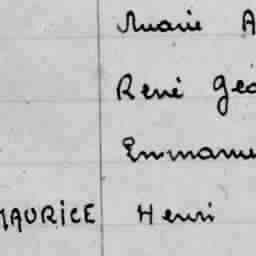 Marie A
René Géo
Emmanue
MAURICE Henri